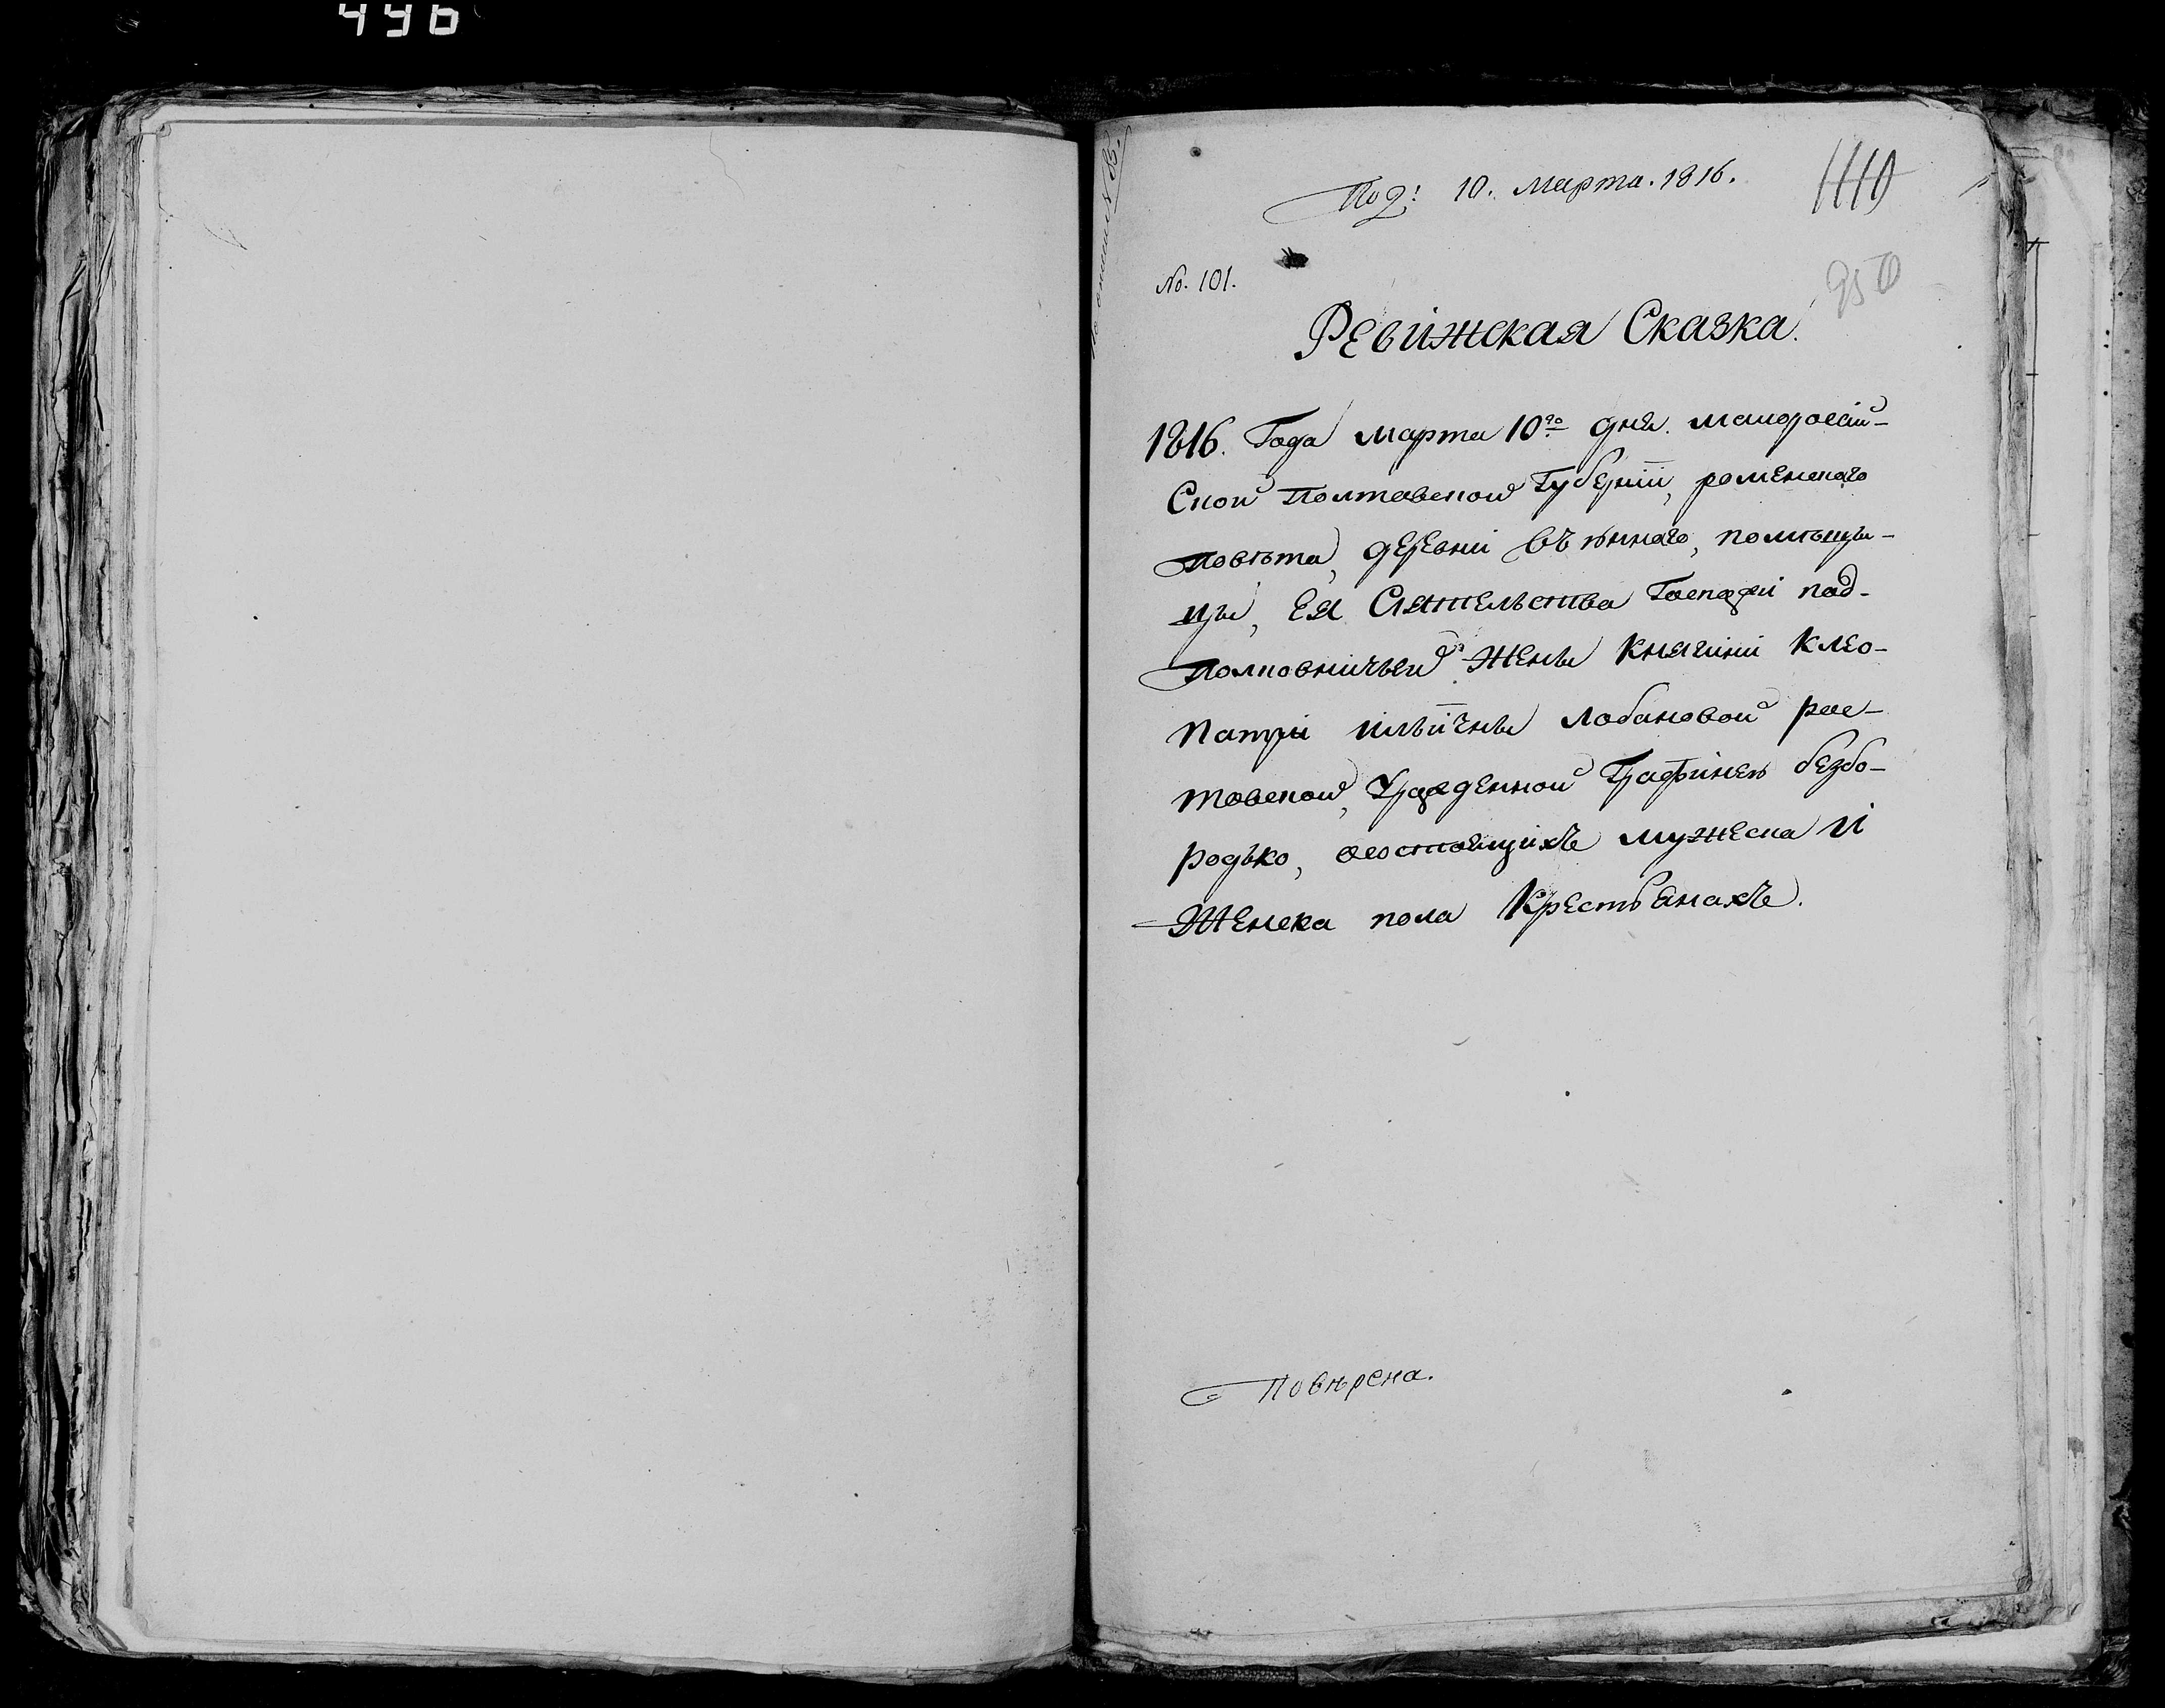 496
Под: 10. Марта. 1816.
950
No. 101.
Ревижская Сказка.
1816. Года марта 10го дня. малоросій-
Ской Полтавской Губерніи, роменскаго
повѣта, деревни помѣщи-
цы, Ея Сіятельства Госпожи под-
полковничьей жены княгини Клео-
патры Ильиичны Лобановой рос-
товской, Урожденной Графинеѣ безбо-
родько, осостоящихъ мужеска И
Женска пола Крестьянахъ.
Повѣрена.